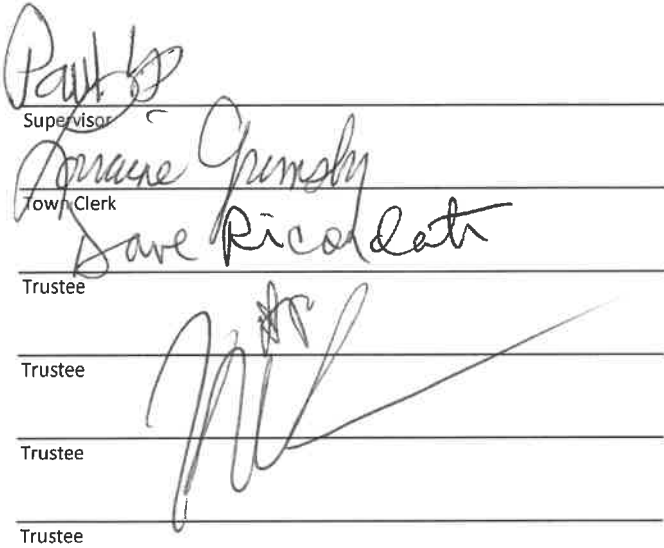 Paul
Supervisor
Lorraine Grimsby
Town Clerk
Dave Ricordati
Trustee
Trustee
Trustee
Trustee